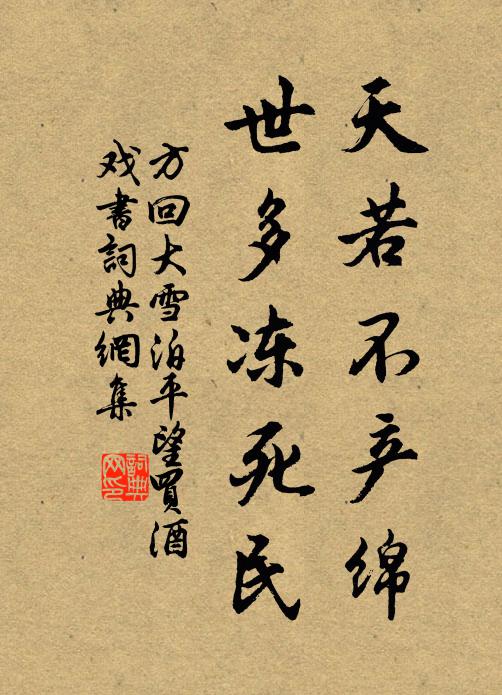 天若不产绵
世多冻死民
方回大雪泊平望買酒
戏書詞典網集
詞典网印